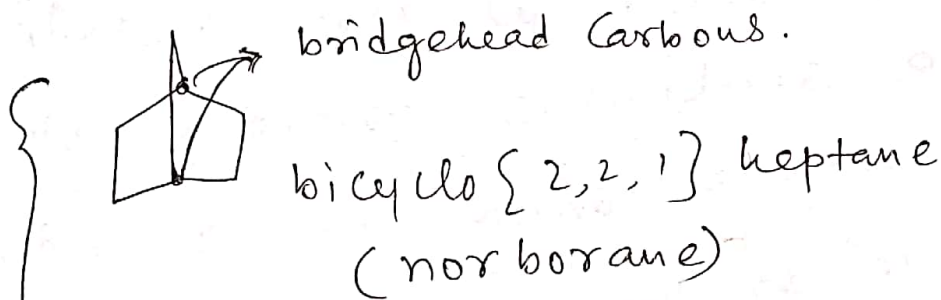 bridgehead Carbons.
bicyclo {2,2,1} heptane
(norborane)